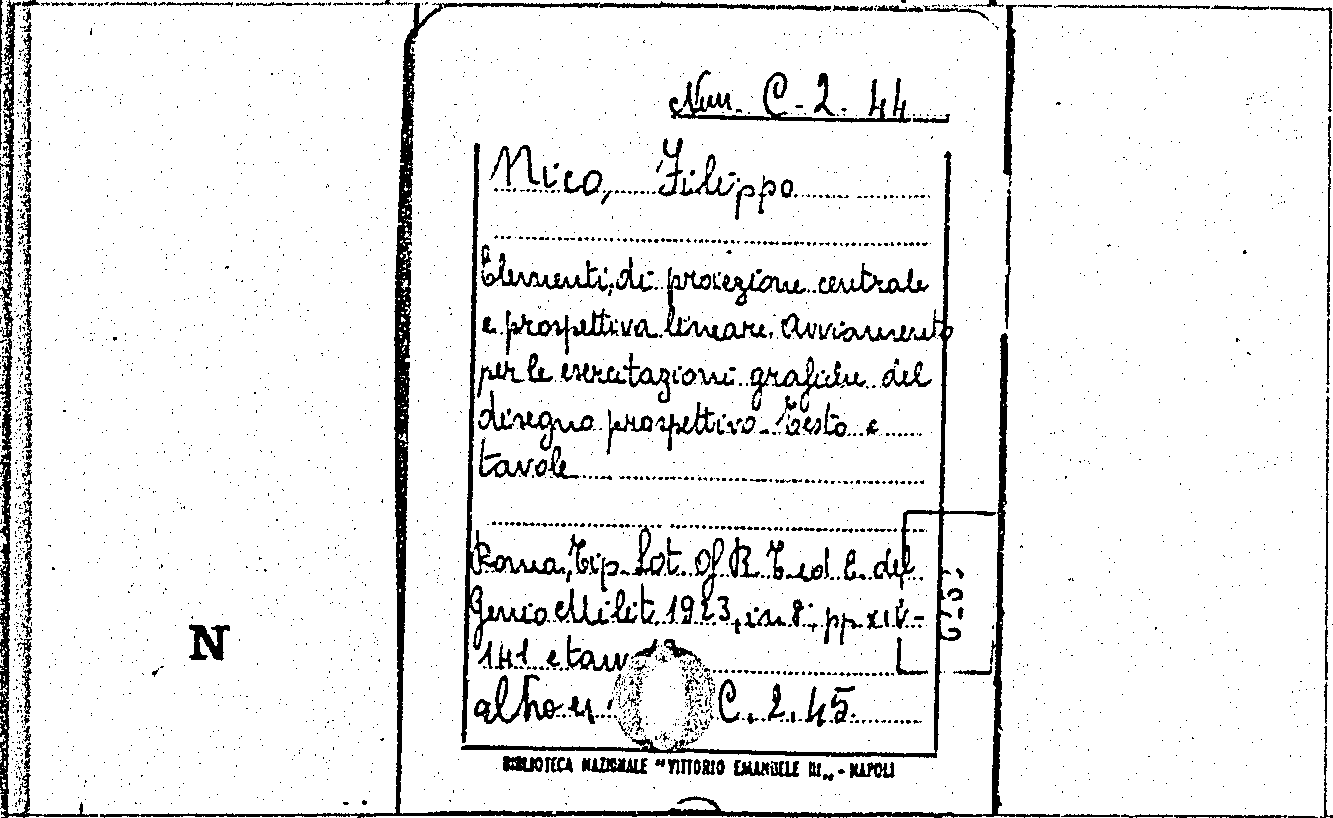 Nun. C-2. 44
Nico, Filippo
Elementi di proiezione centrale
e prospettiva lineare. Avviamento
per le esercitazioni grafiche del
disegno prospettivo. Testo e
tavole
Roma, Tip. Lit. Of R. T. ed E. del
Genio Milit. 1923, in 8°, pp. XIV-
141 e tav.
altro es. C. 2. 45
N
BIBLIOTECA NAZIONALE "VITTORIO EMANUELE III„ - NAPOLI